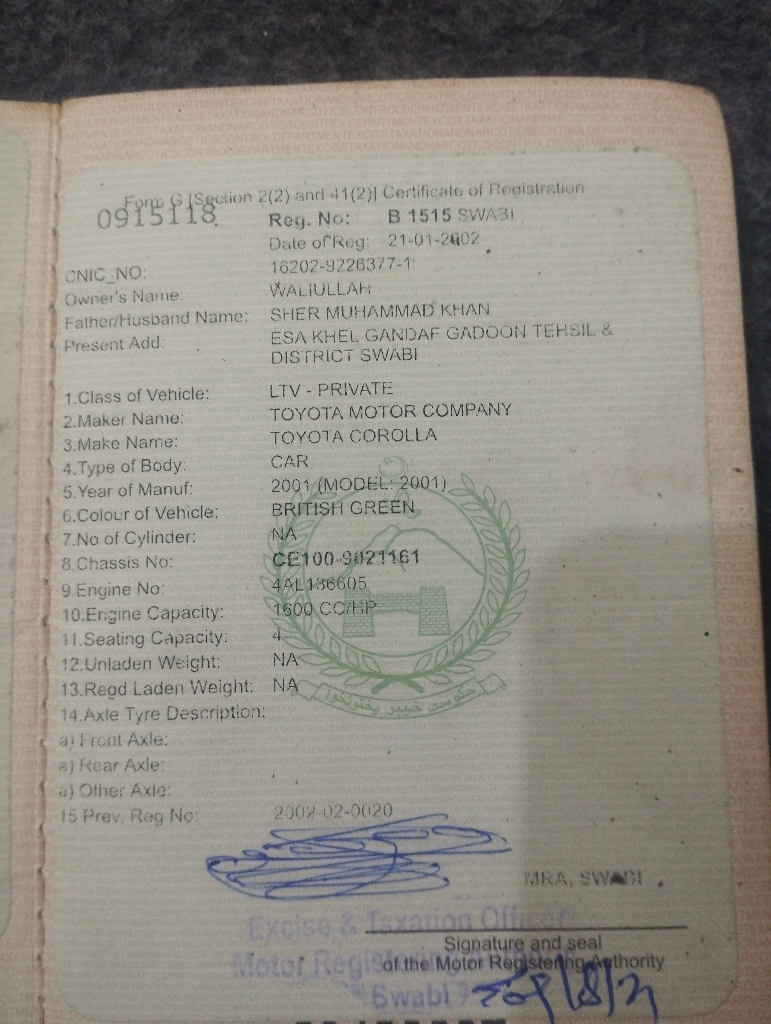 Form G [Section 2(2) and 41(2)] Certificate of Registration
0915118
Reg. No: B 1515 SWABI
Date of Reg: 21-01-2002
CNIC_NO: 16202-9226377-1
Owner's Name: WALIULLAH
Father/Husband Name: SHER MUHAMMAD KHAN
Present Add: ESA KHEL GANDAF GADOON TEHSIL &
DISTRICT SWABI
1.Class of Vehicle: LTV - PRIVATE
2.Maker Name: TOYOTA MOTOR COMPANY
3.Make Name: TOYOTA COROLLA
4.Type of Body: CAR
5.Year of Manuf: 2001 (MODEL: 2001)
6.Colour of Vehicle: BRITISH GREEN
7.No of Cylinder: NA
8.Chassis No: CE100-9021161
9.Engine No: 4AL136605
10.Engine Capacity: 1600 CC/HP
11.Seating Capacity: 4
12.Unladen Weight: NA
13.Regd Laden Weight: NA
حکومت خیبر پختونخوا
14.Axle Tyre Description:
a) Front Axle:
a) Rear Axle:
a) Other Axle:
15 Prev. Reg No: 2002-02-0020
MRA, SWABI
Excise & Taxation Officer
Signature and seal
Motor Registering
of the Motor Registering Authority
Swabi